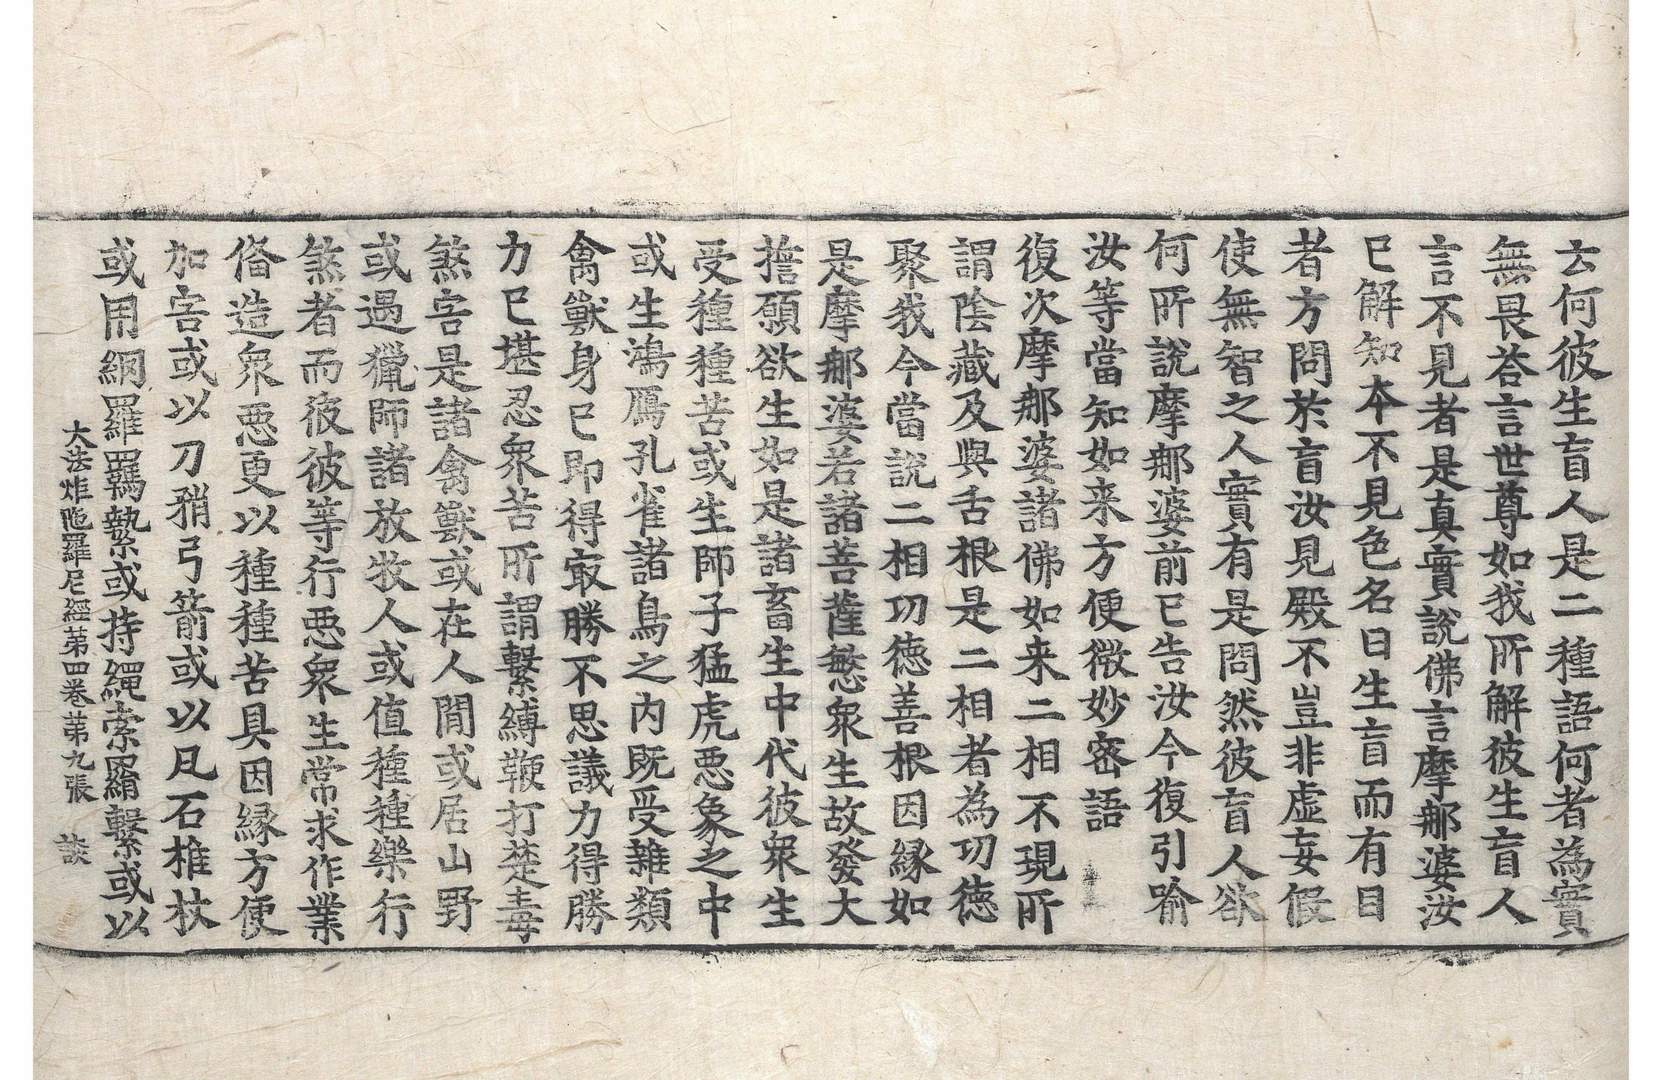 云何彼生盲人是二種語何者為實
無畏荅言世尊如我所解彼生盲人
言不見者是真實說佛言摩那婆汝
已解知本不見色名曰生盲而有目
者方問於盲汝見殿不豈非虛妄假
使無智之人實有是問然彼盲人欲
何所說摩那婆前已告汝今復引喻
汝等當知如来方便微妙密語
復次摩那婆諸佛如来二相不現所
謂陰藏及與舌根是二相者為功德
聚我今當說二相功德善根因縁如
是摩那婆若諸菩薩慜衆生故發大
擔願欲生如是諸畜生中代彼衆生
受種種苦或生師子猛虎惡象之中
或生鴻鴈孔雀諸鳥之内既受雜類
禽獸身已即得㝡勝不思議力得勝
力已堪忍衆苦所謂繫縛鞭打楚毒
煞害是諸禽獸或在人間或居山野
或遇獵師諸放牧人或值種種樂行
煞者而彼彼等行惡衆生常求作業
俻造衆惡更以種種苦具因縁方便
加害或以刀矟弓箭或以凡石椎杖
或用網羅羅羈縶或持繩索羂繫或以
大法炬陁羅尼經苐四卷苐九張　談